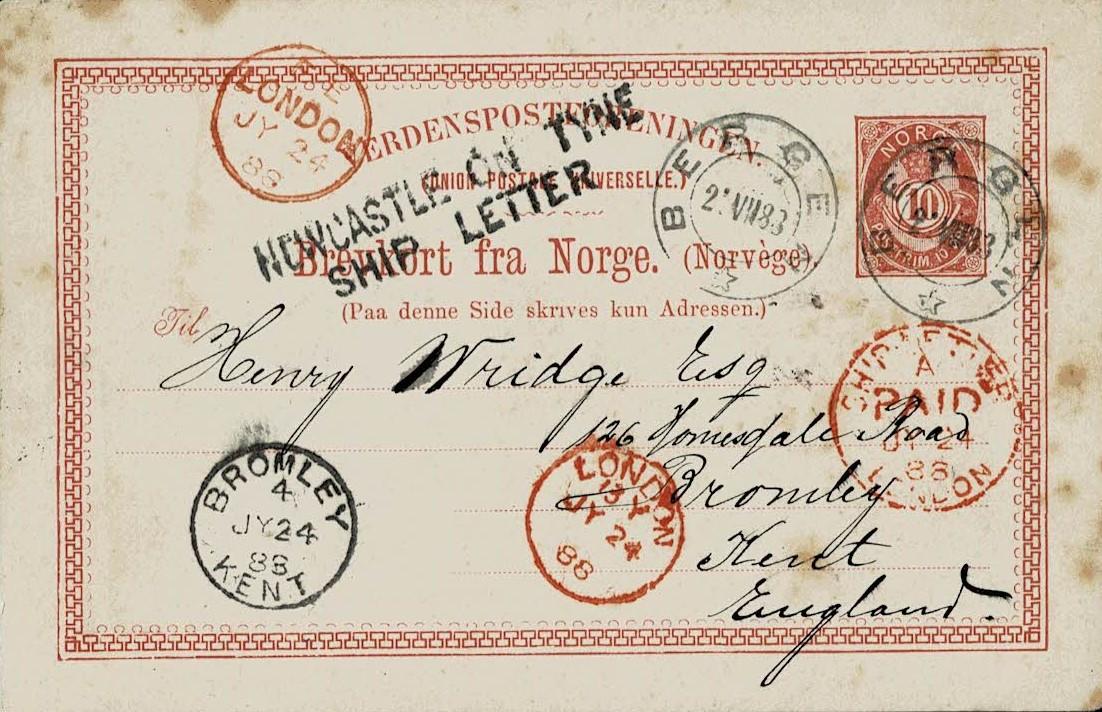 VERDENSPOSTFORENINGEN.
(UNION POSTALE UNIVERSELLE.)
Brevkort fra Norge. (Norvège).
(Paa denne Side skrives kun Adressen.)
NORGE
10
LONDON
JY 24
88
NEWCASTLE ON TYNE
SHIP LETTER
BERGEN
VII 83
BERGEN
Til
Henry Wridge Esq
126 Homesdale Road
Bromley
Kent
England.
SHIP LETTER
A
PAID
JY 24
88
LONDON
BROMLEY
4
JY 24
88
KENT
LONDON
JY 24
88